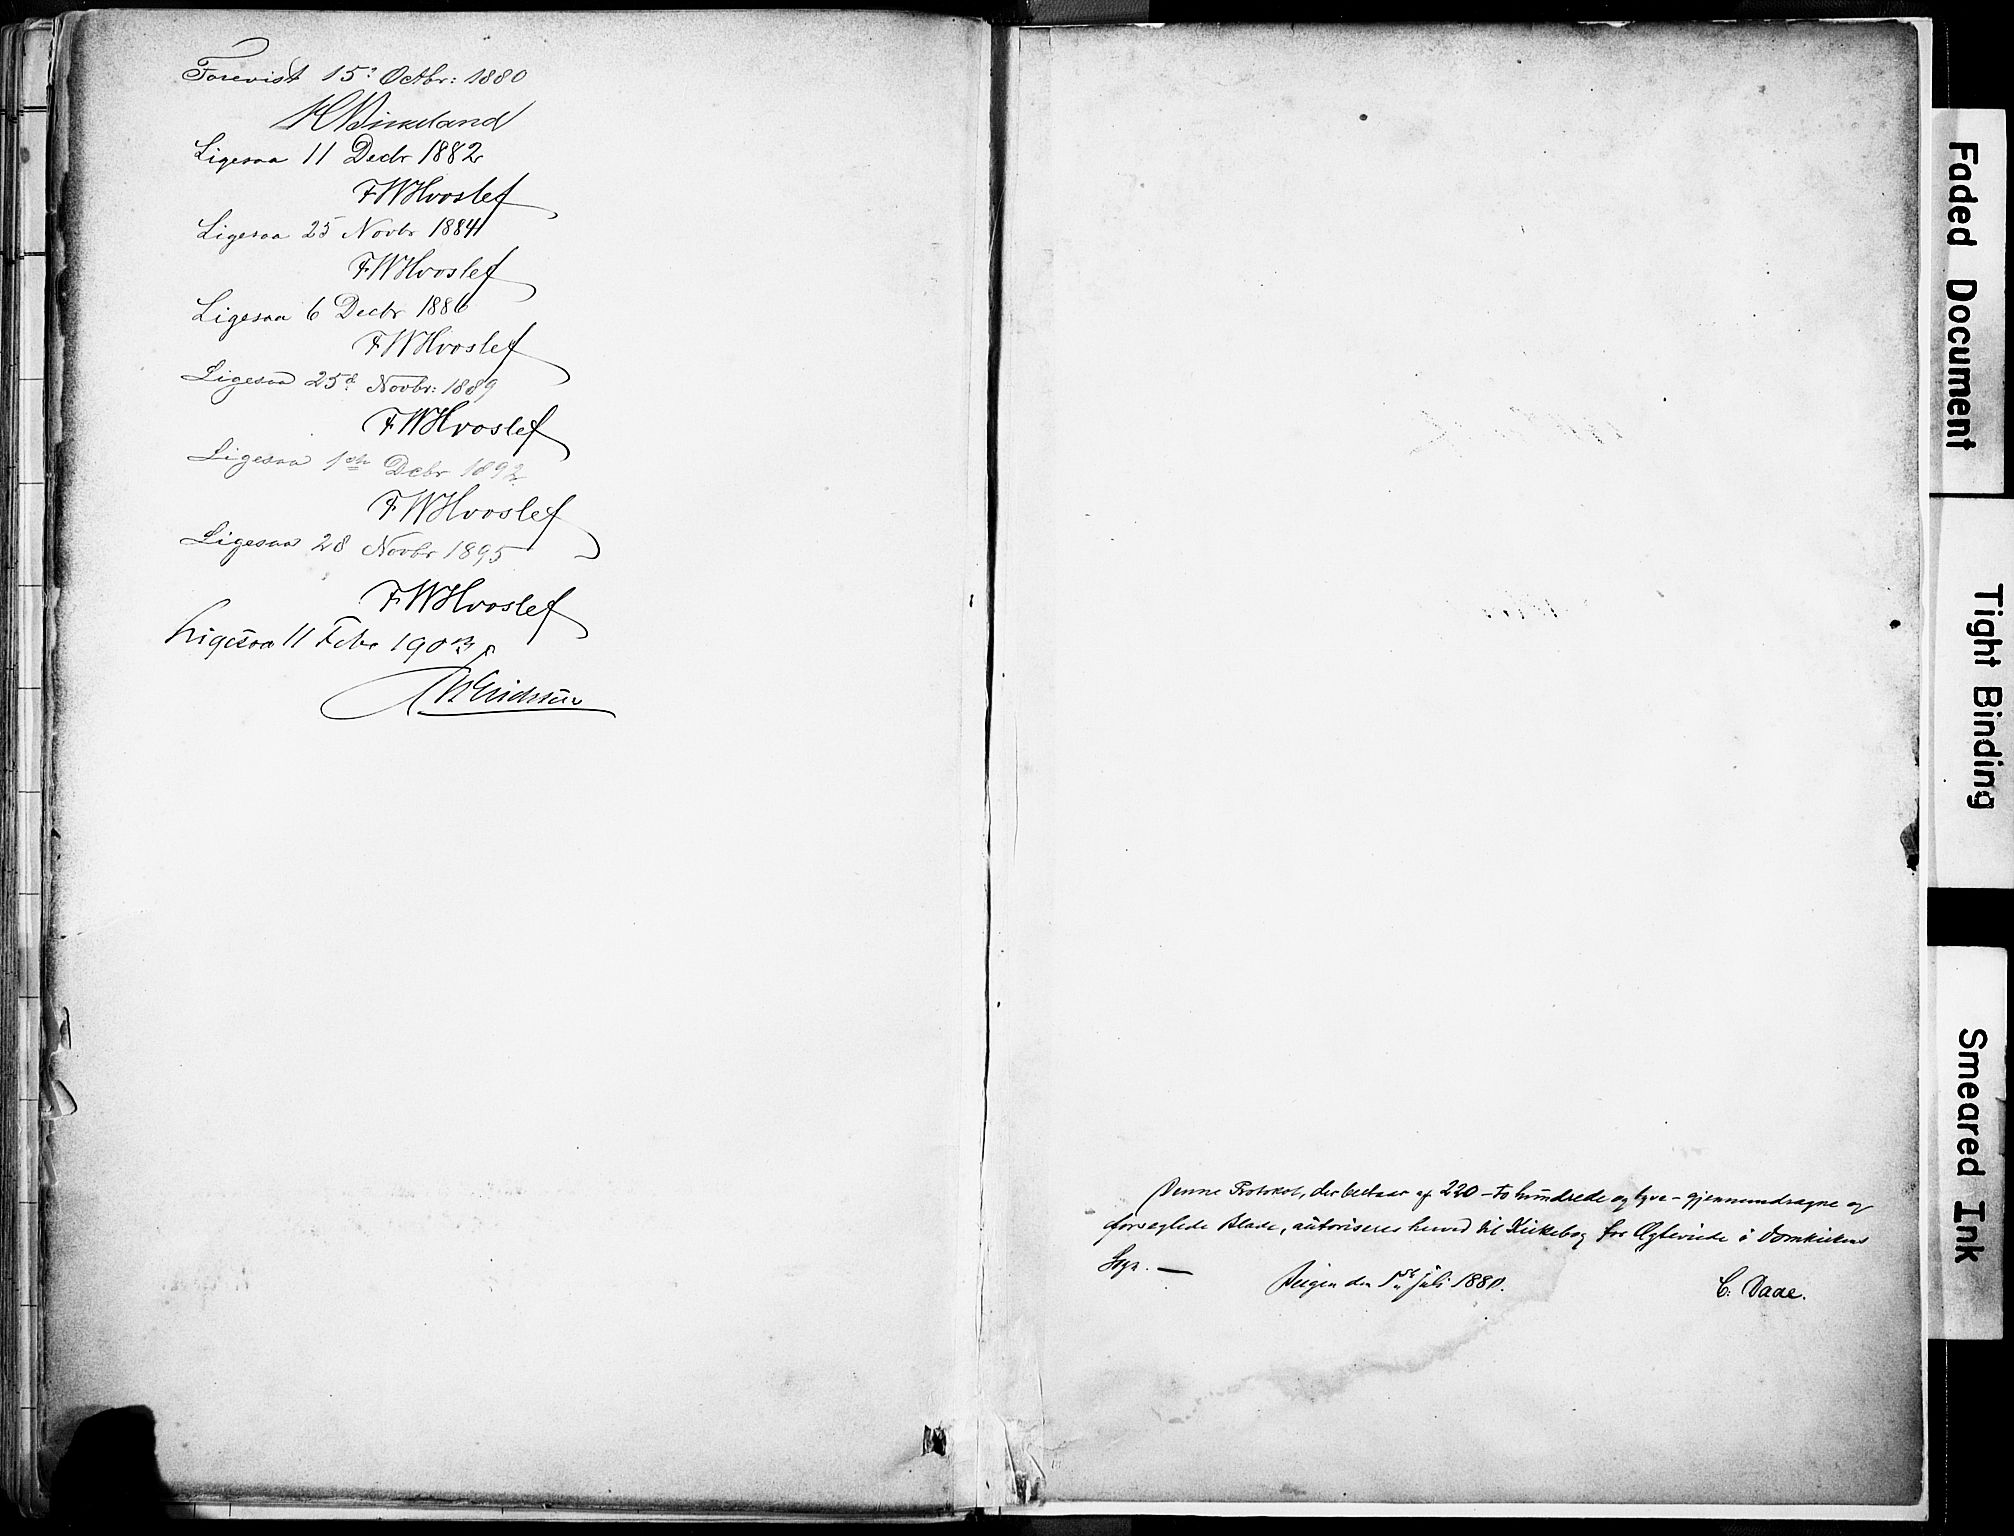 Forevist 15: Octbr: 1880
Birkeland
Ligesaa 11 Decbr 1882
FWHvoslef
Ligesaa 25 Novbr 1884
FWHvoslef
Ligesaa 6 Decbr 1886
FWHvoslef
Ligesaa 25d Novbr: 1889
FWHvoslef
Ligesaa 1ste Decbr 1892
FWHvoslef
Ligesaa 28 Novbr 1895
FWHvoslef
Ligesaa 11 Febr 1903
Erichsen
Denne Protokol, der bestaar af 220 - to hundrede og tyve - gjennemdragne og
forseglede Blade, autoriseres herved til Kirkebog for Ægteviede i Domkirkens
Sogn. —
Bergen den 1ste Juli 1880.
C. Daae.
Faded Document
Tight Binding
Smeared Ink